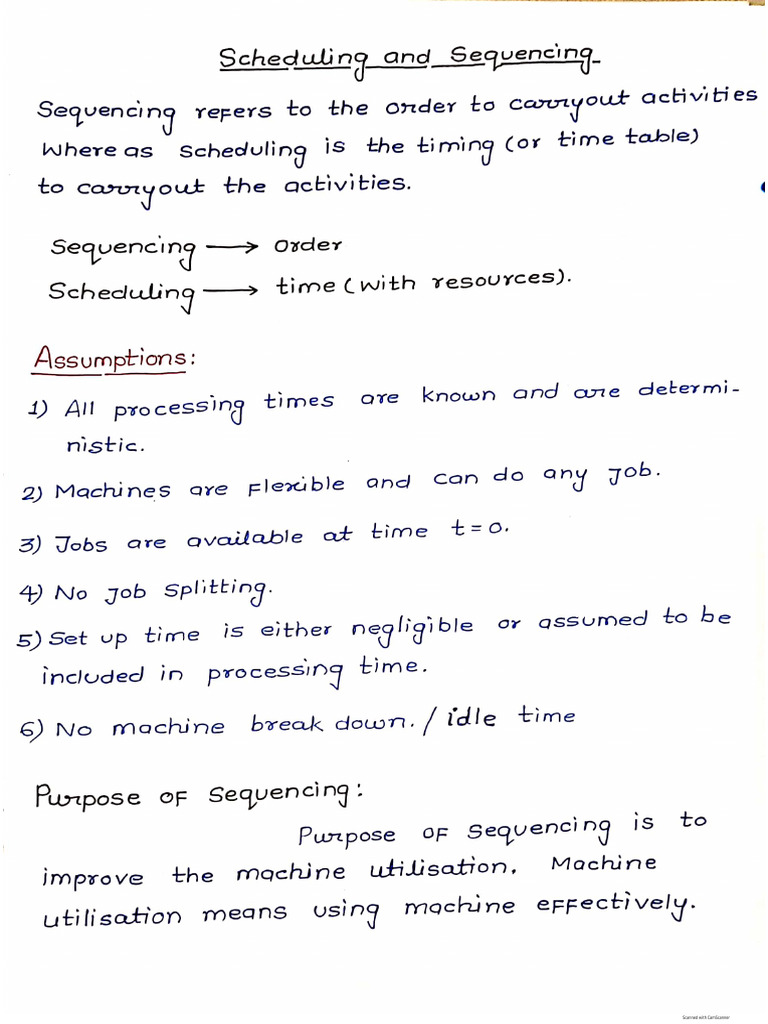 Scheduling and Sequencing
Sequencing refers to the order to carryout activities
Where as scheduling is the timing (or time table)
to carryout the activities.
Sequencing → Order
Scheduling → time (with resources).
Assumptions:
1) All processing times are known and are determi-
nistic.
2) Machines are flexible and can do any job.
3) Jobs are available at time t=0.
4) No job splitting.
5) Set up time is either negligible or assumed to be
included in processing time.
6) No machine break down. / idle time
Purpose of Sequencing:
Purpose of sequencing is to
improve the machine utilisation. Machine
utilisation means using machine effectively.
Scanned with CamScanner